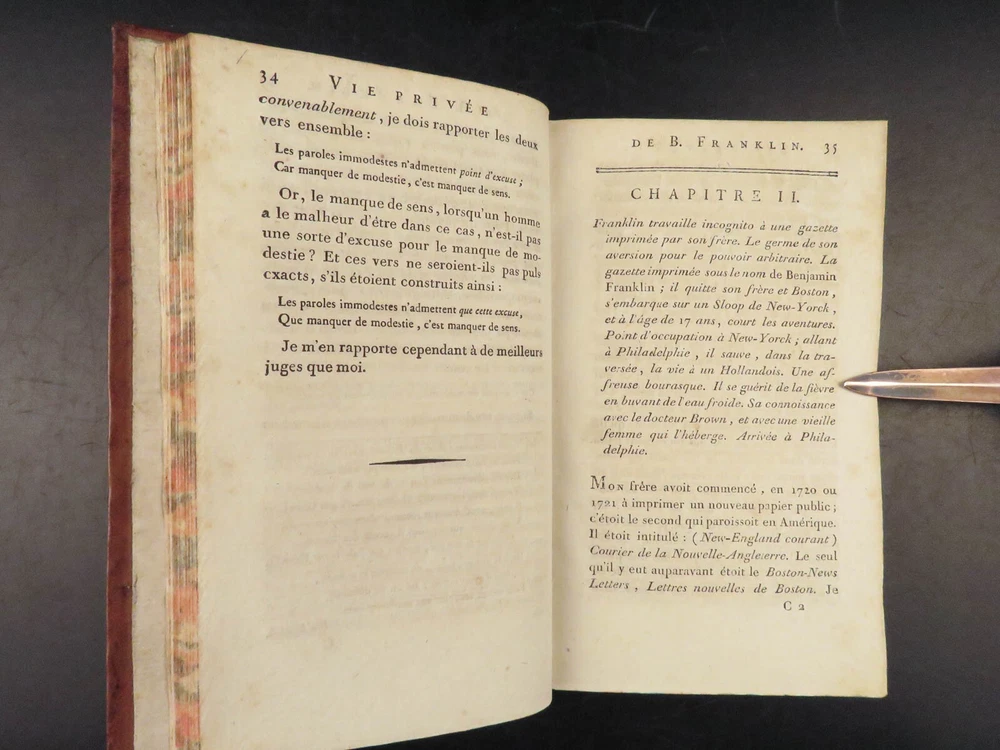 34 VIE PRIVÉE
convenablement, je dois rapporter les deux
vers ensemble :
Les paroles immodestes n'admettent point d'excuse ;
Car manquer de modestie, c'est manquer de sens.
Or, le manque de sens, lorsqu'un homme
a le malheur d'être dans ce cas, n'est-il pas
une sorte d'excuse pour le manque de mo-
destie ? Et ces vers ne seroient-ils pas puls
exacts, s'ils étoient construits ainsi :
Les paroles immodestes n'admettent que cette excuse,
Que manquer de modestie, c'est manquer de sens.
Je m'en rapporte cependant à de meilleurs
juges que moi.
DE B. FRANKLIN. 35
CHAPITRE II.
Franklin travaille incognito à une gazette
imprimée par son frère. Le germe de son
aversion pour le pouvoir arbitraire. La
gazette imprimée sous le nom de Benjamin
Franklin ; il quitte son frère et Boston,
s'embarque sur un Sloop de New-Yorck,
et à l'âge de 17 ans, court les aventures.
Point d'occupation à New-Yorck ; allant
à Philadelphie, il sauve, dans la tra-
versée, la vie à un Hollandois. Une af-
freuse bourasque. Il se guérit de la fièvre
en buvant de l'eau froide. Sa connoissance
avec le docteur Brown, et avec une vieille
femme qui l'héberge. Arrivée à Phila-
delphie.
MON frère avoit commencé, en 1720 ou
1721 à imprimer un nouveau papier public ;
c'étoit le second qui paroissoit en Amérique.
Il étoit intitulé : (New-England courant)
Courier de la Nouvelle-Angleterre. Le seul
qu'il y eut auparavant étoit le Boston-News
Letters, Lettres nouvelles de Boston. Je
C 2